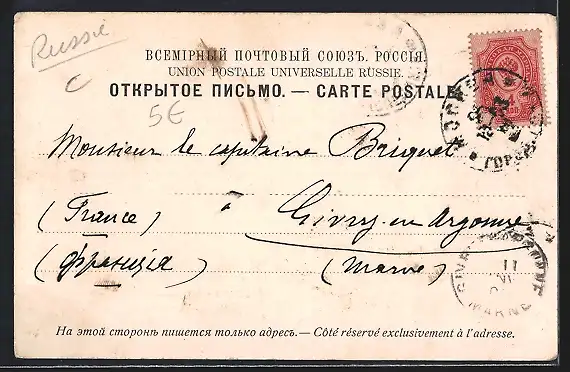 Russie
ВСЕМІРНЫЙ ПОЧТОВЫЙ СОЮЗЪ. РОССІЯ.
UNION POSTALE UNIVERSELLE RUSSIE.
ОТКРЫТОЕ ПИСЬМО. — CARTE POSTALE.
5€
Monsieur le capitaine Briquet
(France) à Givry-en-Argonne
(Франція) (Marne)
MARNE
На этой сторонѣ пишется только адресъ. — Côté réservé exclusivement à l'adresse.